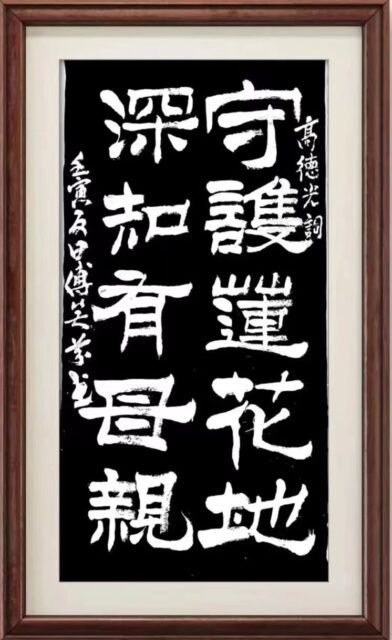 高德光詞
守護蓮花地
深知有母親
壬寅夏日傅书